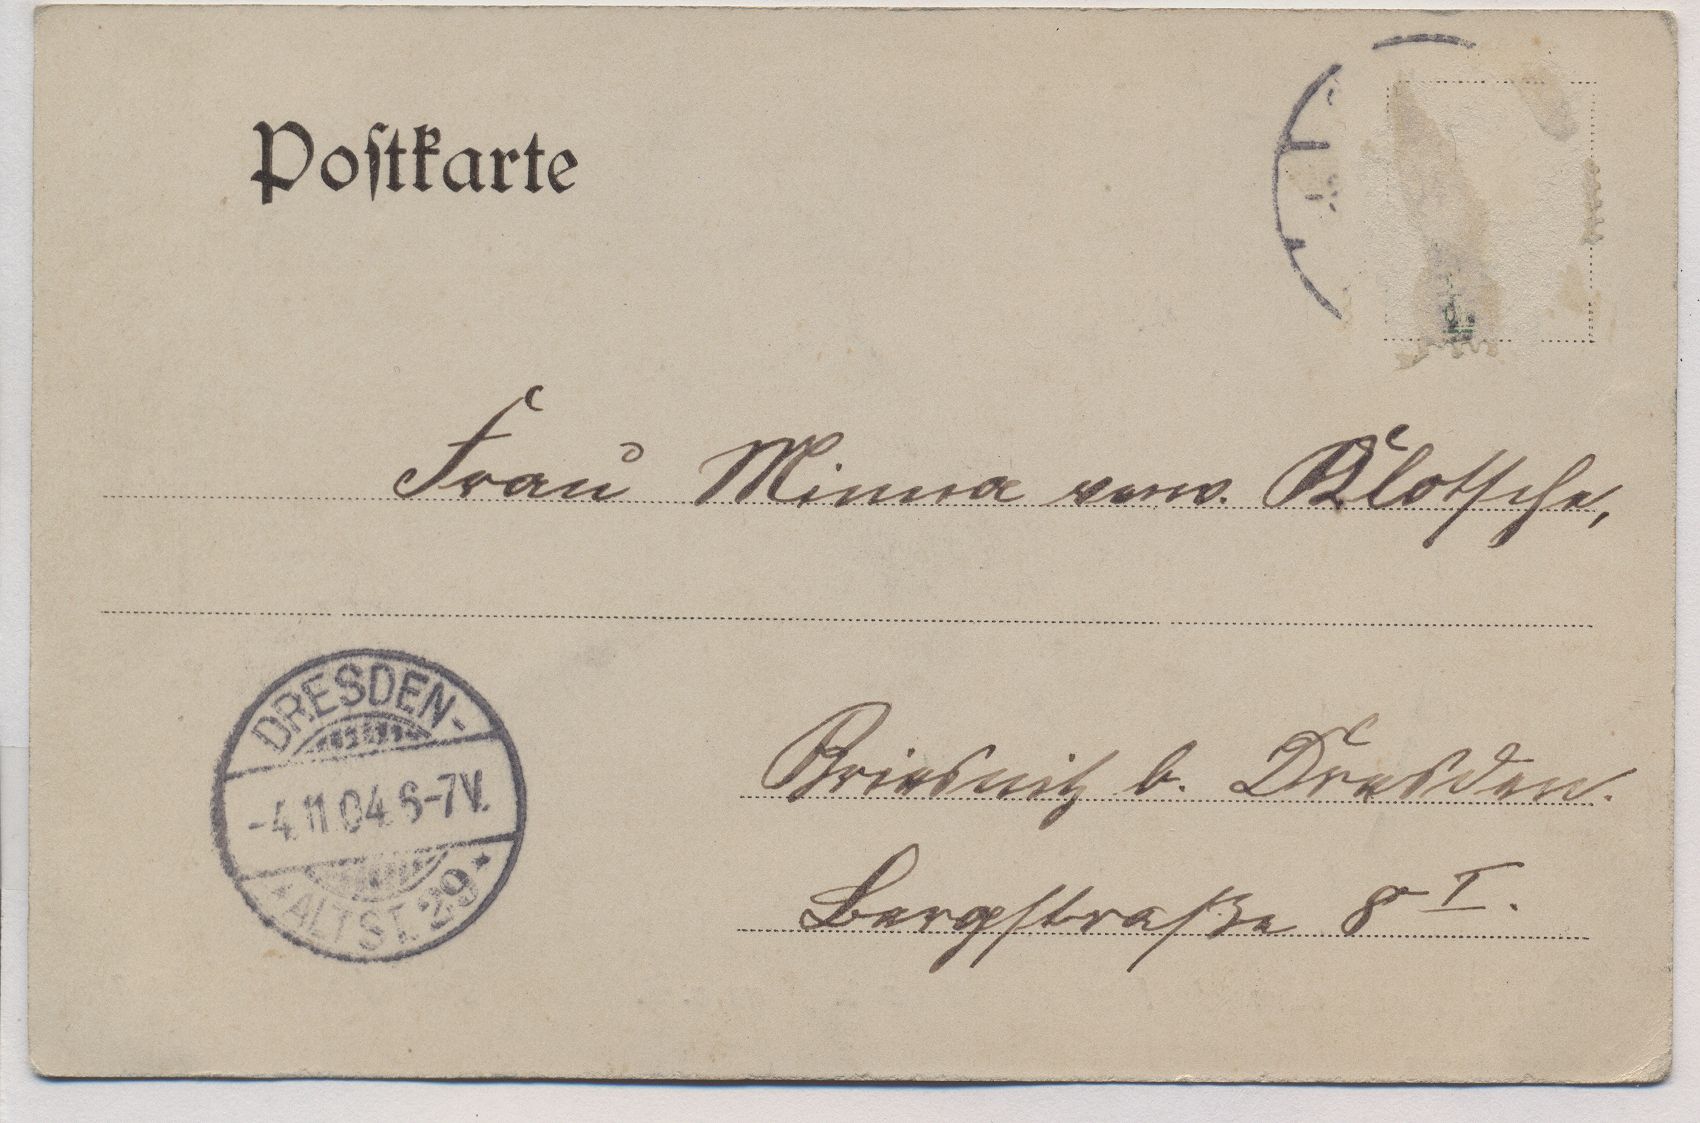 Postkarte
Frau Minna verw. Klotsche,
DRESDEN-
-4.11.04.6-7V.
*ALTST. 29*
Briesnitz b. Dresden.
Bergstraße 8 I.